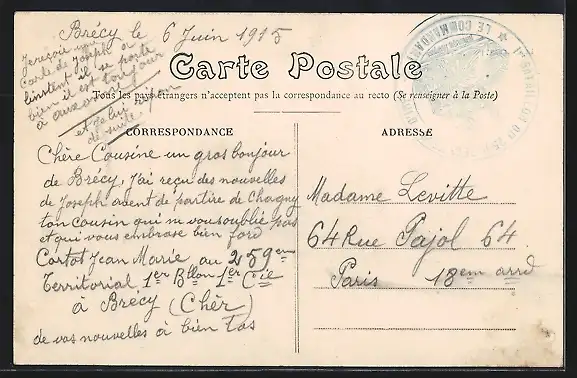 Brécy le 6 Juin 1915
Je reçois une
Carte de Joseph a
l'instent il se porte
bien il est toujour
a auxonne
et de lui
de suite
Carte Postale
Tous les pays étrangers n'acceptent pas la correspondance au recto (Se renseigner à la Poste)
CORRESPONDANCE
Chère Cousine un gros bonjour
de Brécy, J'ai reçu des nouvelles
de Joseph avent de partire de Chagny
ton Cousin qui ni vousoublie pas
et qui vous embrase bien ford
Cortot Jean Marie au 259em
Territorial 1er Bllon 1er Cie
à Brécy (Chèr)
de vos nouvelles a bien Tos
ADRESSE
Madame Levitte
64 Rue Pajol 64
Paris 18em arrd
★ LE COMMANDANT